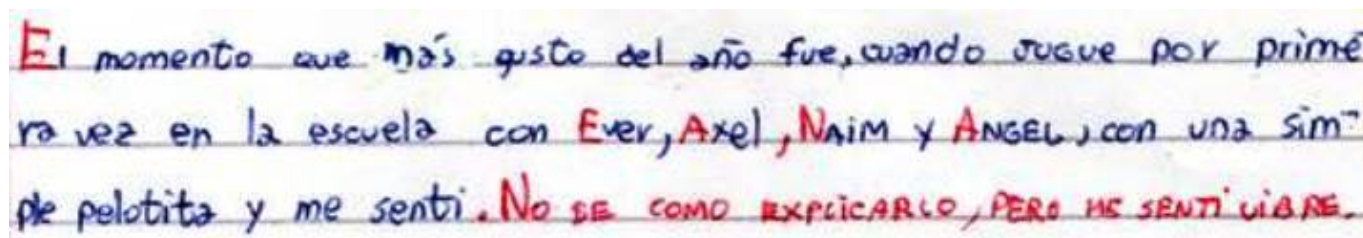 El momento que más gusto del año fue, cuando jugue por prime-
ra vez en la escuela con Ever, Axel, NAIM y ANGEL, con una sim-
ple pelotita y me senti. No SE COMO EXPLICARLO, PERO ME SENTI LIBRE.